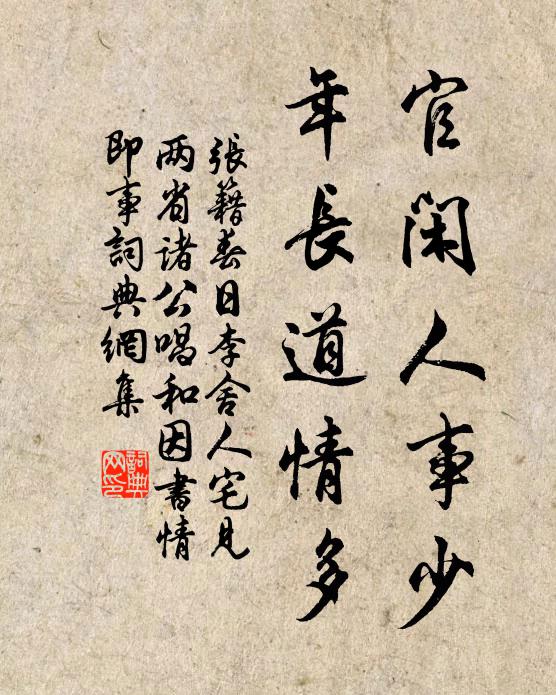 官閑人事少
年長道情多
張籍春日李舍人宅見
两省諸公唱和因書情
即事詞典網集
詞典
网印